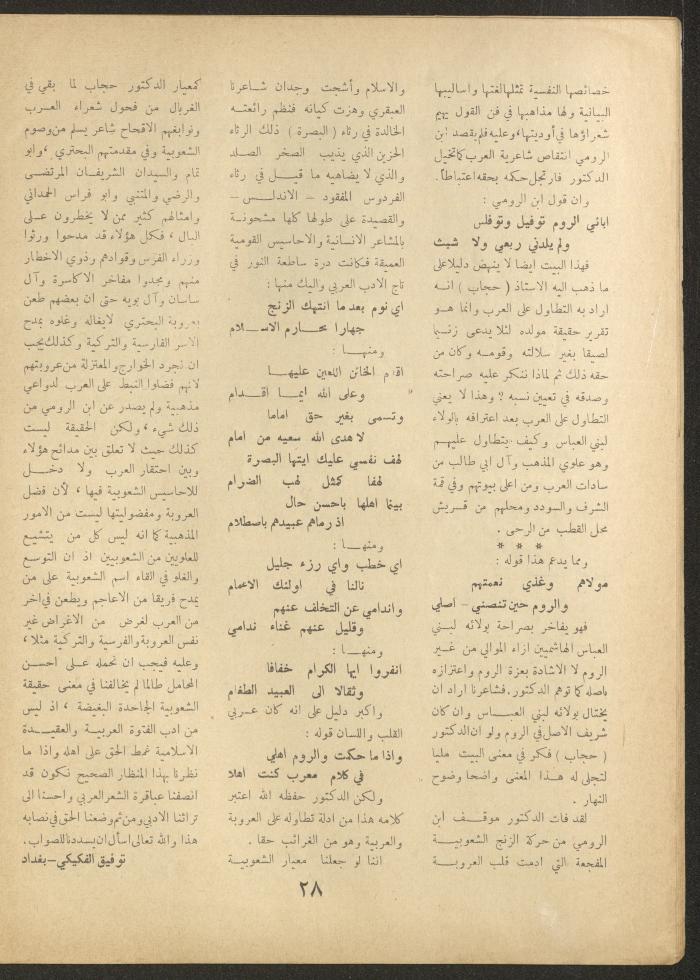 خصائصها النفسية تمثلها لغتها واساليبها
البيانية ولها مذاهبها في فن القول يهيم
شعراؤها في أوديتها، وعليه فلم يقصد ابن
الرومي انتقاص شاعرية العرب كما تخيل
الدكتور فارتجل حكمه بحقه اعتباطاً.
وان قول ابن الرومي :
ابائي الروم توفيل وتوفلس
ولم يلدني ربعي ولا شبث
فهذا البيت ايضا لا ينهض دليلا على
ما ذهب اليه الاستاذ ( حجاب ) انــه
اراد به التطاول على العرب وانما هــو
تقرير حقيقة مولده لئلا يدعى زنــيما
لصيقا بغير سلالته وقومــه وكان من
حقه ذلك ثم لماذا ننكر عليه صراحته
وصدقه في تعيين نسبه ؟ وهذا لا يعني
التطاول على العرب بعد اعترافه بالولاء
لبني العباس وكيف يتطاول عليهــم
وهو علوي المذهب وآل ابي طالب من
سادات العرب ومن اعلى بيوتهم وفي قمة
الشرف والسودد ومحلهم من قــريش
محل القطب من الرحى .
* * *
ومما يدعم هذا قوله :
مولاهم وغذي نعمتهم
والروم حين تنصني – اصلي
فهو يفاخر بصراحة بولائه لبــني
العباس الهاشميين ازاء الموالي من غــير
الروم لا الاشادة بعزة الروم واعتزازه
باصله كما توهم الدكتور. فشاعرنا اراد ان
يختال بولائه لبني العبــاس وان كان
شريف الاصل في الروم ولو ان الدكتور
( حجاب ) فكر في معنى البيت مليا
لتجلى له هــذا المعنى واضحا وضوح
النهار .
لقد فات الدكتور موقــف ابن
الرومي من حركة الزنج الشعوبيــة
المفجعة التي ادمت قلب العروبــة
والاسلام وأشجت وجدان شــاعرنا
العبقري وهزت كيانه فنظم رائعتــه
الخالدة في رثاء ( البصرة ) ذلك الرثاء
الحزين الذي يذيب الصخر الصــلد
والذي لا يضاهيه ما قيــل في رثاء
الفردوس المفقود – الاندلــس –
والقصيدة على طولها كلها مشحونــة
بالمشاعر الانسانية والاحاسيس القومية
العميقة فكانت درة ساطعة النور في
تاج الادب العربي واليك منها :
اي نوم بعد ما انتهك الزنج
جهارا محــارم الاســلام
ومنهــا :
اقدم الخائن اللعين عليهــا
وعلى الله ايمــا اقــدام
وتسمى بغير حق اماما
لا هدى الله سعيه من امام
لهف نفسي عليك ايتها البصرة
لهفا كمثل لهب الضرام
بينما اهلها باحسن حال
اذ رماهم عبيدهم باصطلام
ومنهــا :
اي خطب واي رزء جليل
نالنا في اولئك الاعمام
واندامي عن التخلف عنهم
وقليل عنهم غناء ندامي
ومنهــا :
انفروا ايها الكرام خفافا
وثقالا الى العبيد الطغام
واكبر دليل على انه كان عــربي
القلب واللسان قوله :
واذا ما حكمت والروم اهلي
في كلام معرب كنت اهلا
ولكن الدكتور حفظه الله اعتبر
كلامه هذا من ادلة تطاوله على العروبة
والعربية وهو من الغرائب حقا .
اننا لو جعلنا معيار الشعوبيــة
كمعيار الدكتور حجاب لما بقي في
الغربال من فحول شعراء العــرب
ونوابغهم الاقحاح شاعر يسلم من وصوم
الشعوبية وفي مقدمتهم البحتري ، وابو
تمام والسيدان الشريفــان المرتضــى
والرضي والمتنبي وابو فراس الحمداني
وامثالهم كثير ممن لا يخطرون عــلى
البال ، فكل هؤلاء قد مدحوا ورثوا
وزراء الفرس وقوادهم وذوي الاخطار
منهم ومجدوا مفاخر الاكاسرة وآل
ساسان وآل بويه حتى ان بعضهم طعن
بعروبة البحتري لايغاله وغلوه بمدح
الاسر الفارسية والتركية وكذلك يجب
ان نجرد الخوارج والمعتزلة من عروبتهم
لانهم فضلوا النبط على العرب لدواعي
مذهبية ولم يصدر عن ابن الرومي من
ذلك شيء ، ولكن الحقيقة ليست
كذلك حيث لا تعلق بين مدائح هؤلاء
وبين احتقار العرب ولا دخــل
للاحاسيس الشعوبية فيها ، لأن فضل
العروبة ومفضوليتها ليست من الامور
المذهبية كما انه ليس كل من يتشيــع
للعلويين من الشعوبيين اذ ان التوسع
والغلو في القاء اسم الشعوبية على من
يمدح فريقا من الاعاجم ويطعن في آخر
من العرب لغرض من الاغراض غير
نفس العروبة والفرسية والتركية مثلا ،
وعليه فيجب ان نحمله عــلى احســن
المحامل طالما لم يخالفنا في معنى حقيقة
الشعوبية الجاحدة البغيضة ، اذ ليس
من ادب الفتوة العربيــة والعقيــدة
الاسلامية غمط الحق على اهله واذا ما
نظرنا بهذا المنظار الصحيح نكون قد
انصفنا عباقرة الشعر العربي واحسنا الى
تراثنا الادبي ومن ثم وضعنا الحق في نصابه
هذا والله تعالى اسأل ان يسددنا للصواب.
توفيق الفكيكي – بغداد
٢٨